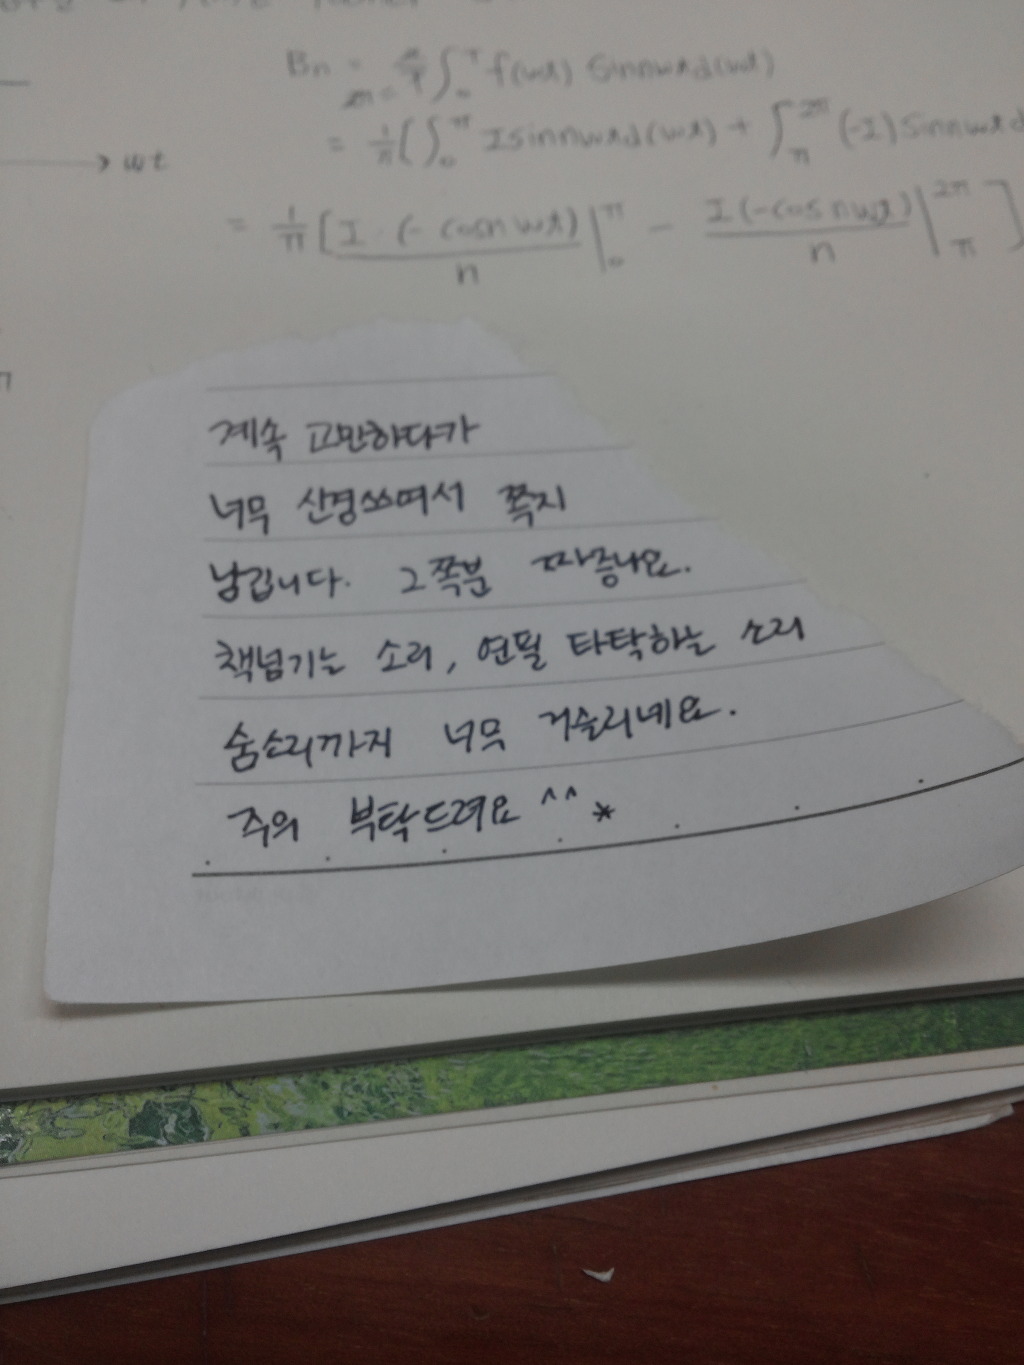 Bn = 2/T ∫₀ᵀ f(wt) Sinnwtd(wt)
= 1/π [∫₀^π I sinnwtd(wt) + ∫_π^2π (-I) Sinnwtd
→ wt
= 1/π [I·(-cosnwt)/n |₀^π - I(-cosnwt)/n |_π^2π]
계속 고민하다가
너무 신경쓰여서 쪽지
남깁니다. 그쪽분 짜증나요.
책넘기는 소리, 연필 타탁하는 소리
숨소리까지 너무 거슬리네요.
주의 부탁드려요 ^^*